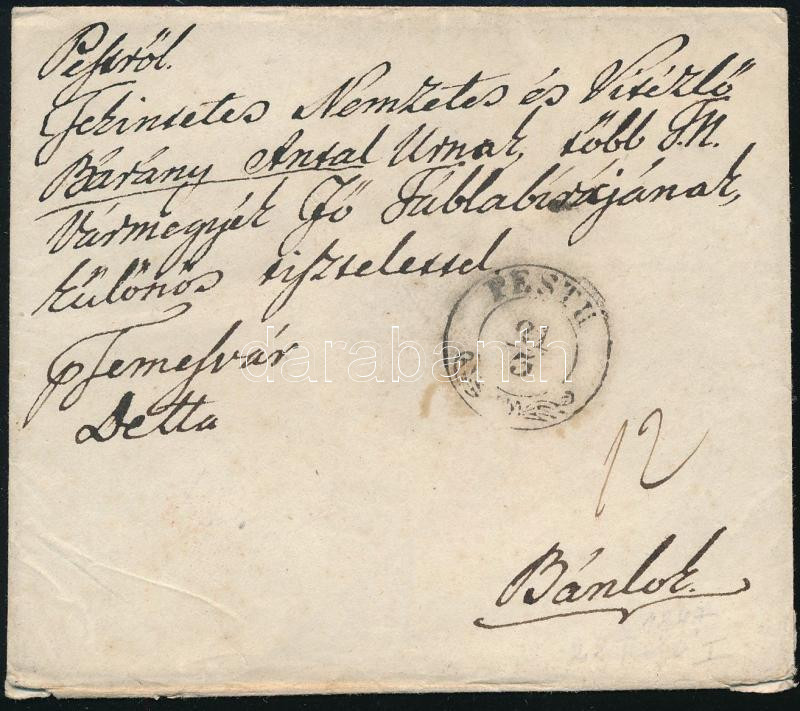 Pestről.
Tekintetes Nemzetes és Vitézlő
Bárány Antal Urnak, több T. N.
Vármegyék Fő Táblabírájának,
különös tisztelettel.
PESTH
21
5
p Temesvár
Detta
12
Bánlok.
darabanth.com
1847